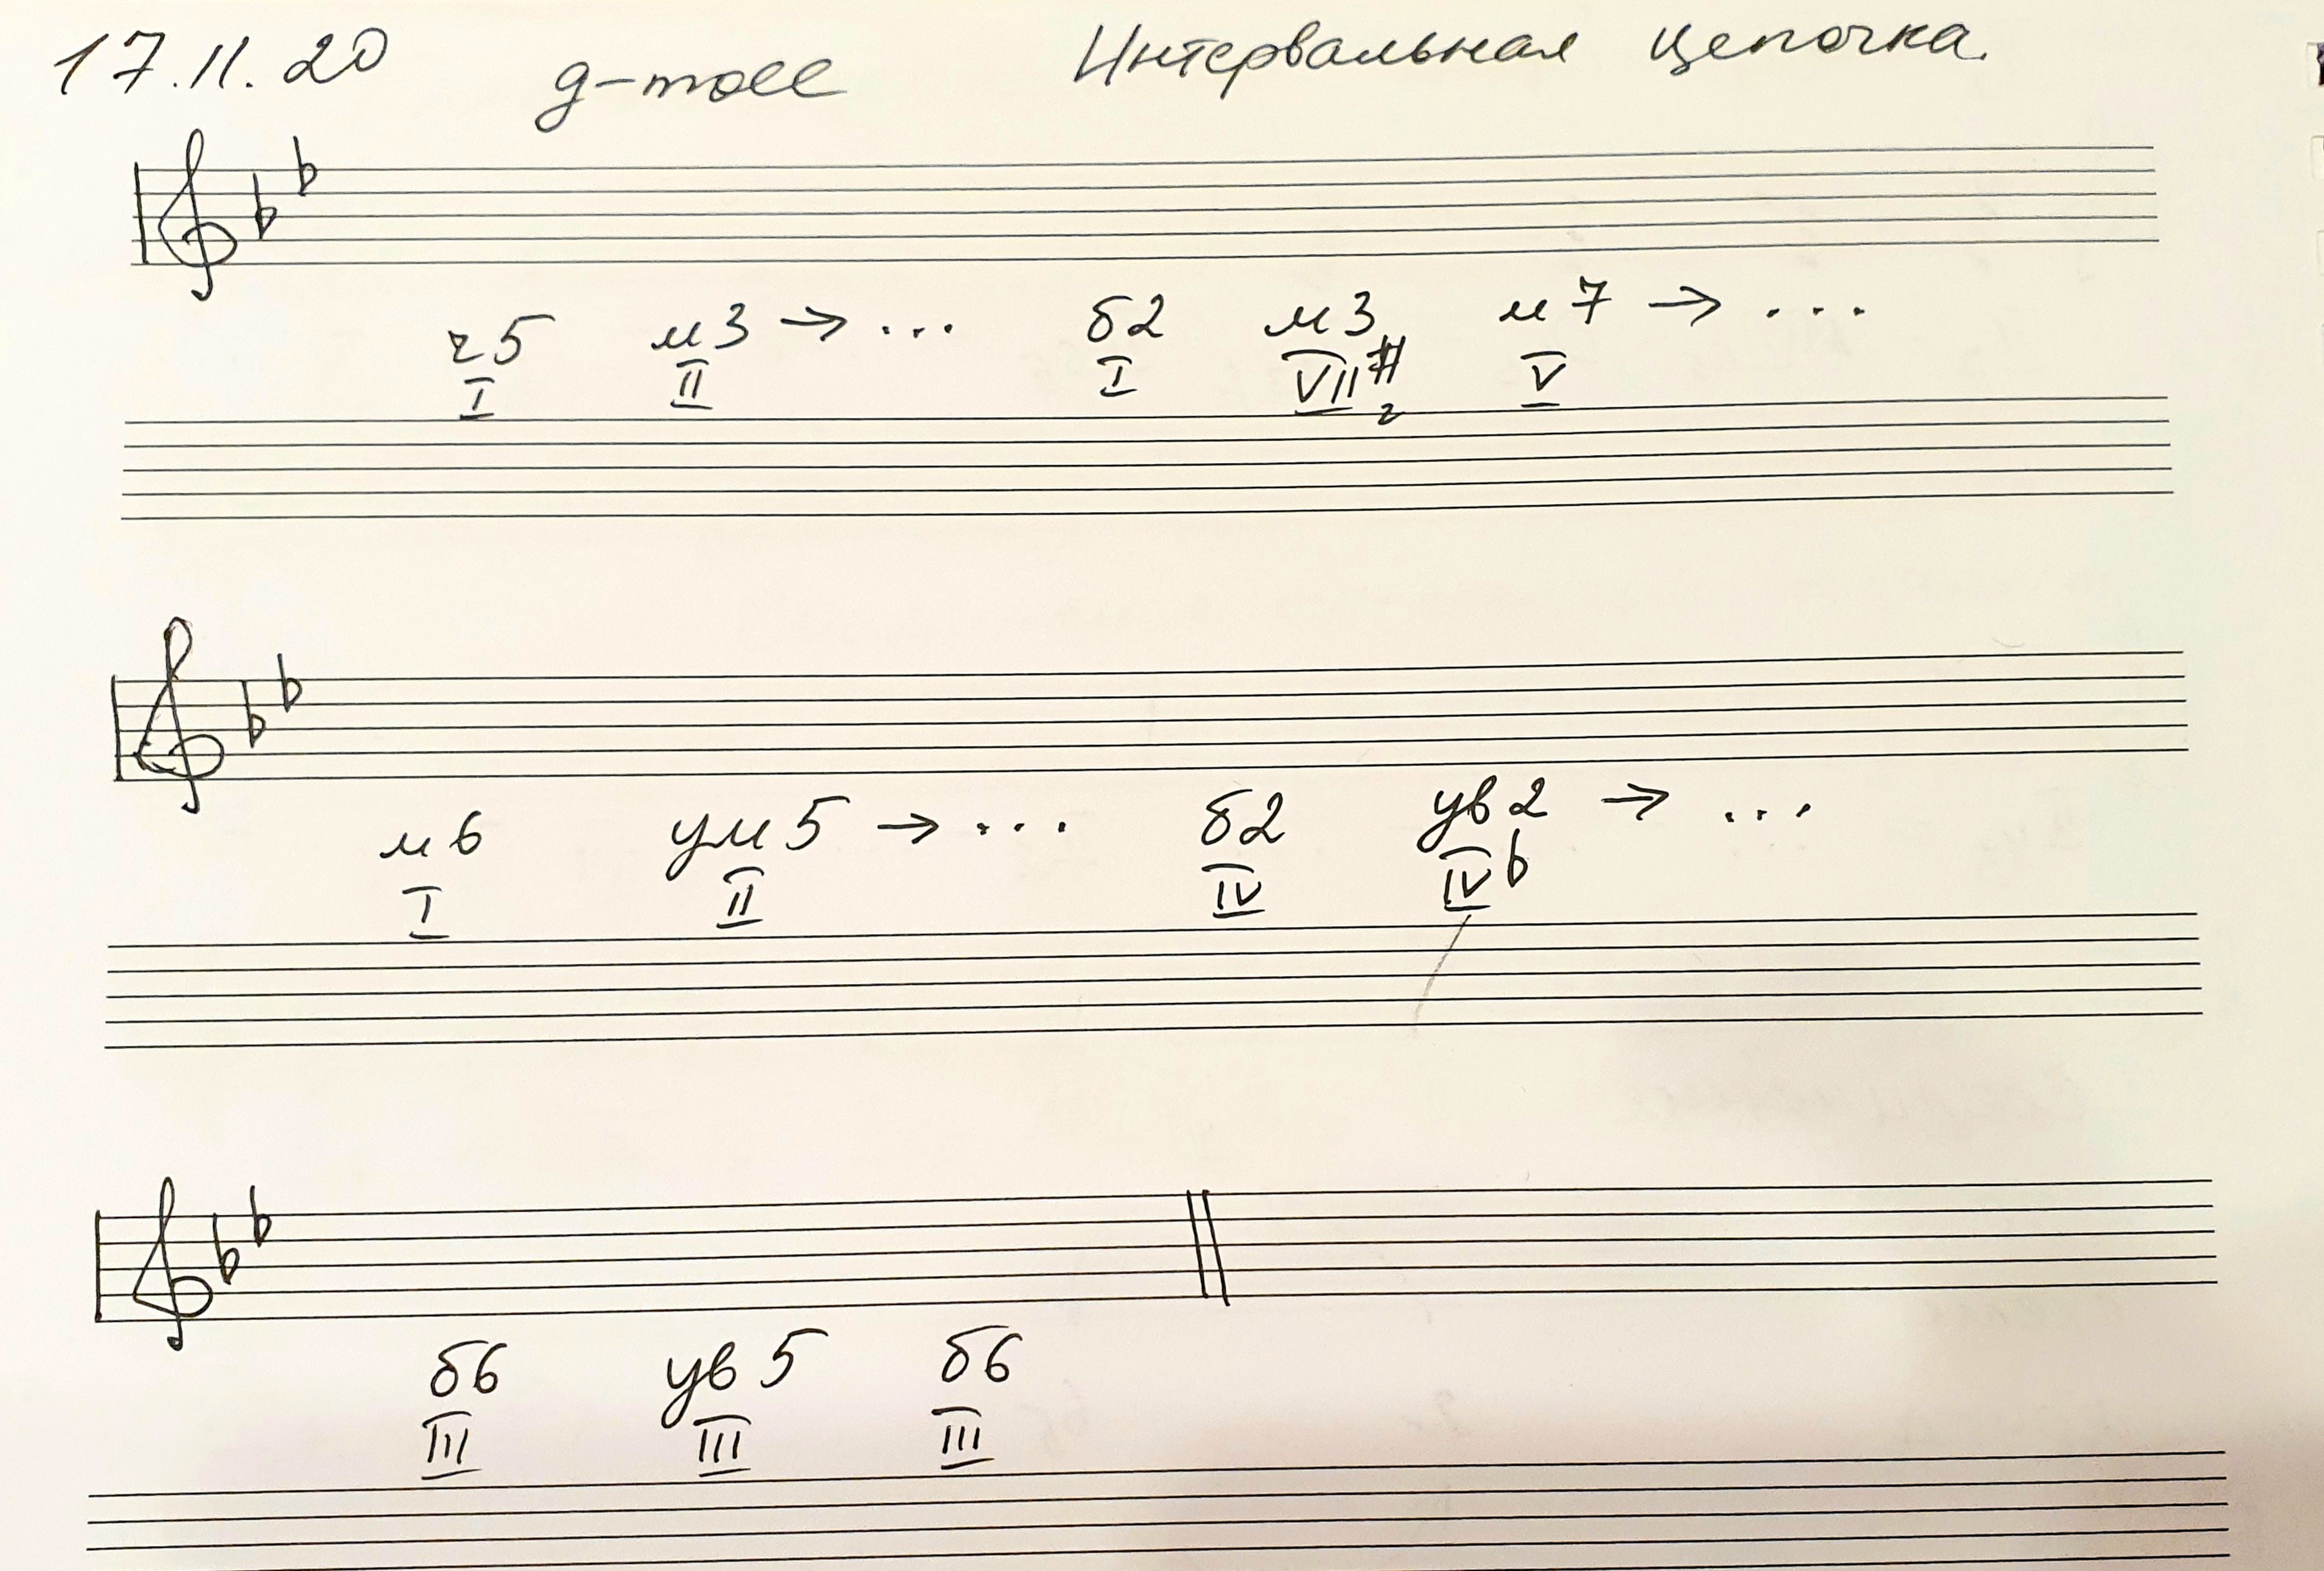 17.11.20 g-moll Интервальная цепочка.
ч5 м3 → ... б2 м3 м7 → ...
I II I VII# V
г
м6 ум5 → ... б2 ув2 → ...
I II IV IVb
б6 ув5 б6
III III III